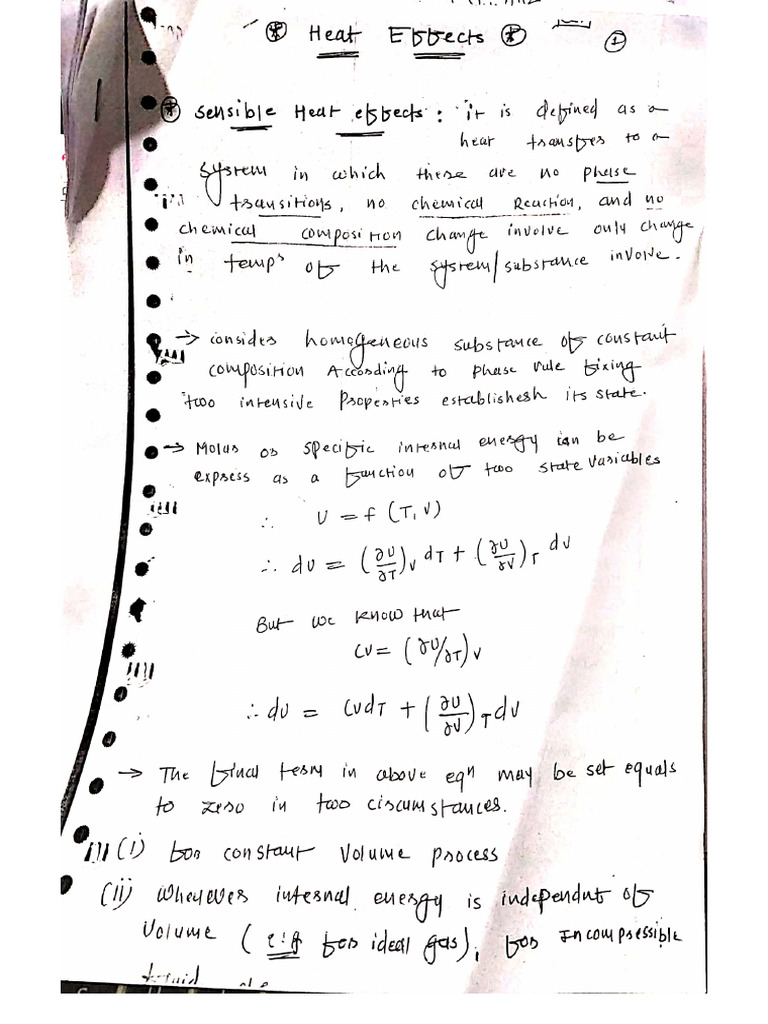 ⊛ Heat Effects ⊛ ①
⊛ Sensible Heat effects : it is defined as a
heat transfer to a
system in which there are no phase
transitions, no chemical Reaction, and no
chemical composition change involve only change
in temp^r of the system/substance involve.
→ Consider homogeneous substance of constant
composition According to phase rule fixing
two intensive Properties establishesh its state.
→ Molar or specific internal energy can be
express as a function of two state variables
∴ U = f (T, V)
∴ dU = (∂U/∂T)_V dT + (∂U/∂V)_T dV
But we know that
CV = (∂U/∂T)_V
∴ dU = CVdT + (∂U/∂V)_T dV
→ The final term in above eqⁿ may be set equals
to zero in two circumstances.
(i) for constant volume process
(ii) whenever internal energy is independnt of
volume (e.g for ideal gas), for Incompressible